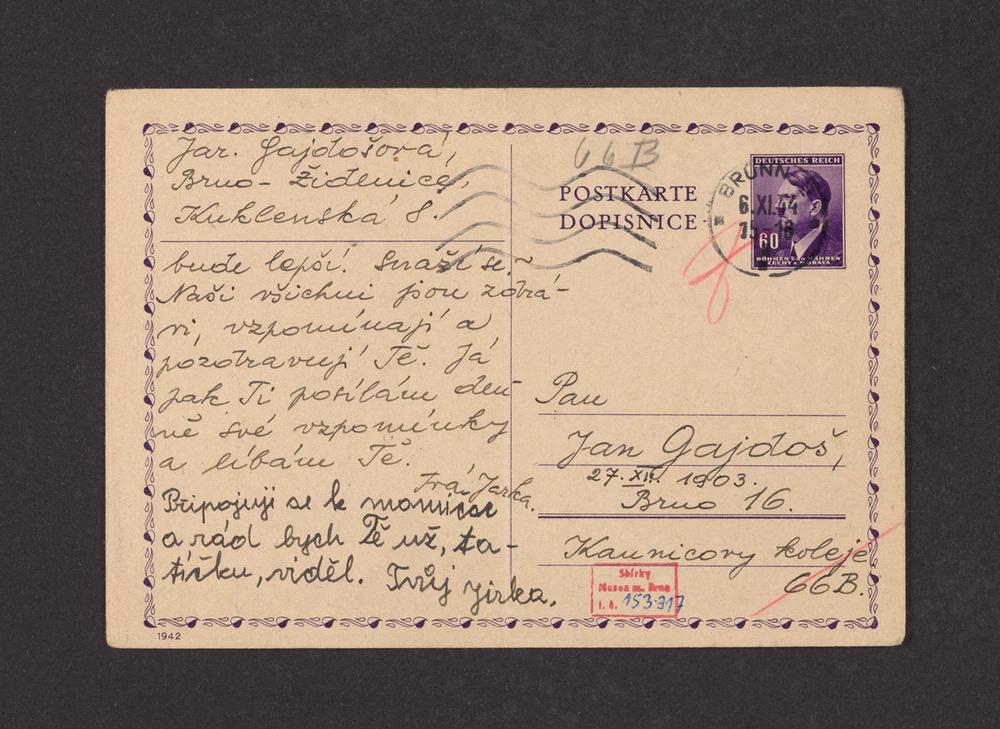 Jar. Gajdošová,
Brno - Židenice,
Kuklenská 8.
bude lepší. Snaží se,-
Naši všichni jsou zdrá-
vi, vzpomínají a
pozdravují Tě. Já
pak Ti posílám den-
ně své vzpomínky
a líbám Tě.
Tvá Jarka.
Připojuji se k mamičce
a rád bych Tě už, ta-
tíčku, viděl. Tvůj Jirka.
1942
66B
POSTKARTE
DOPISNICE
BRÜNN
6.XI.44
15-16
DEUTSCHES REICH
60
BÖHMEN UND MÄHREN
ČECHY A MORAVA
Pan
Jan Gajdoš,
27. XII. 1903.
Brno 16.
Kaunicovy koleje
66B.
Sbírky
Musea m. Brna
i. č. 153.917